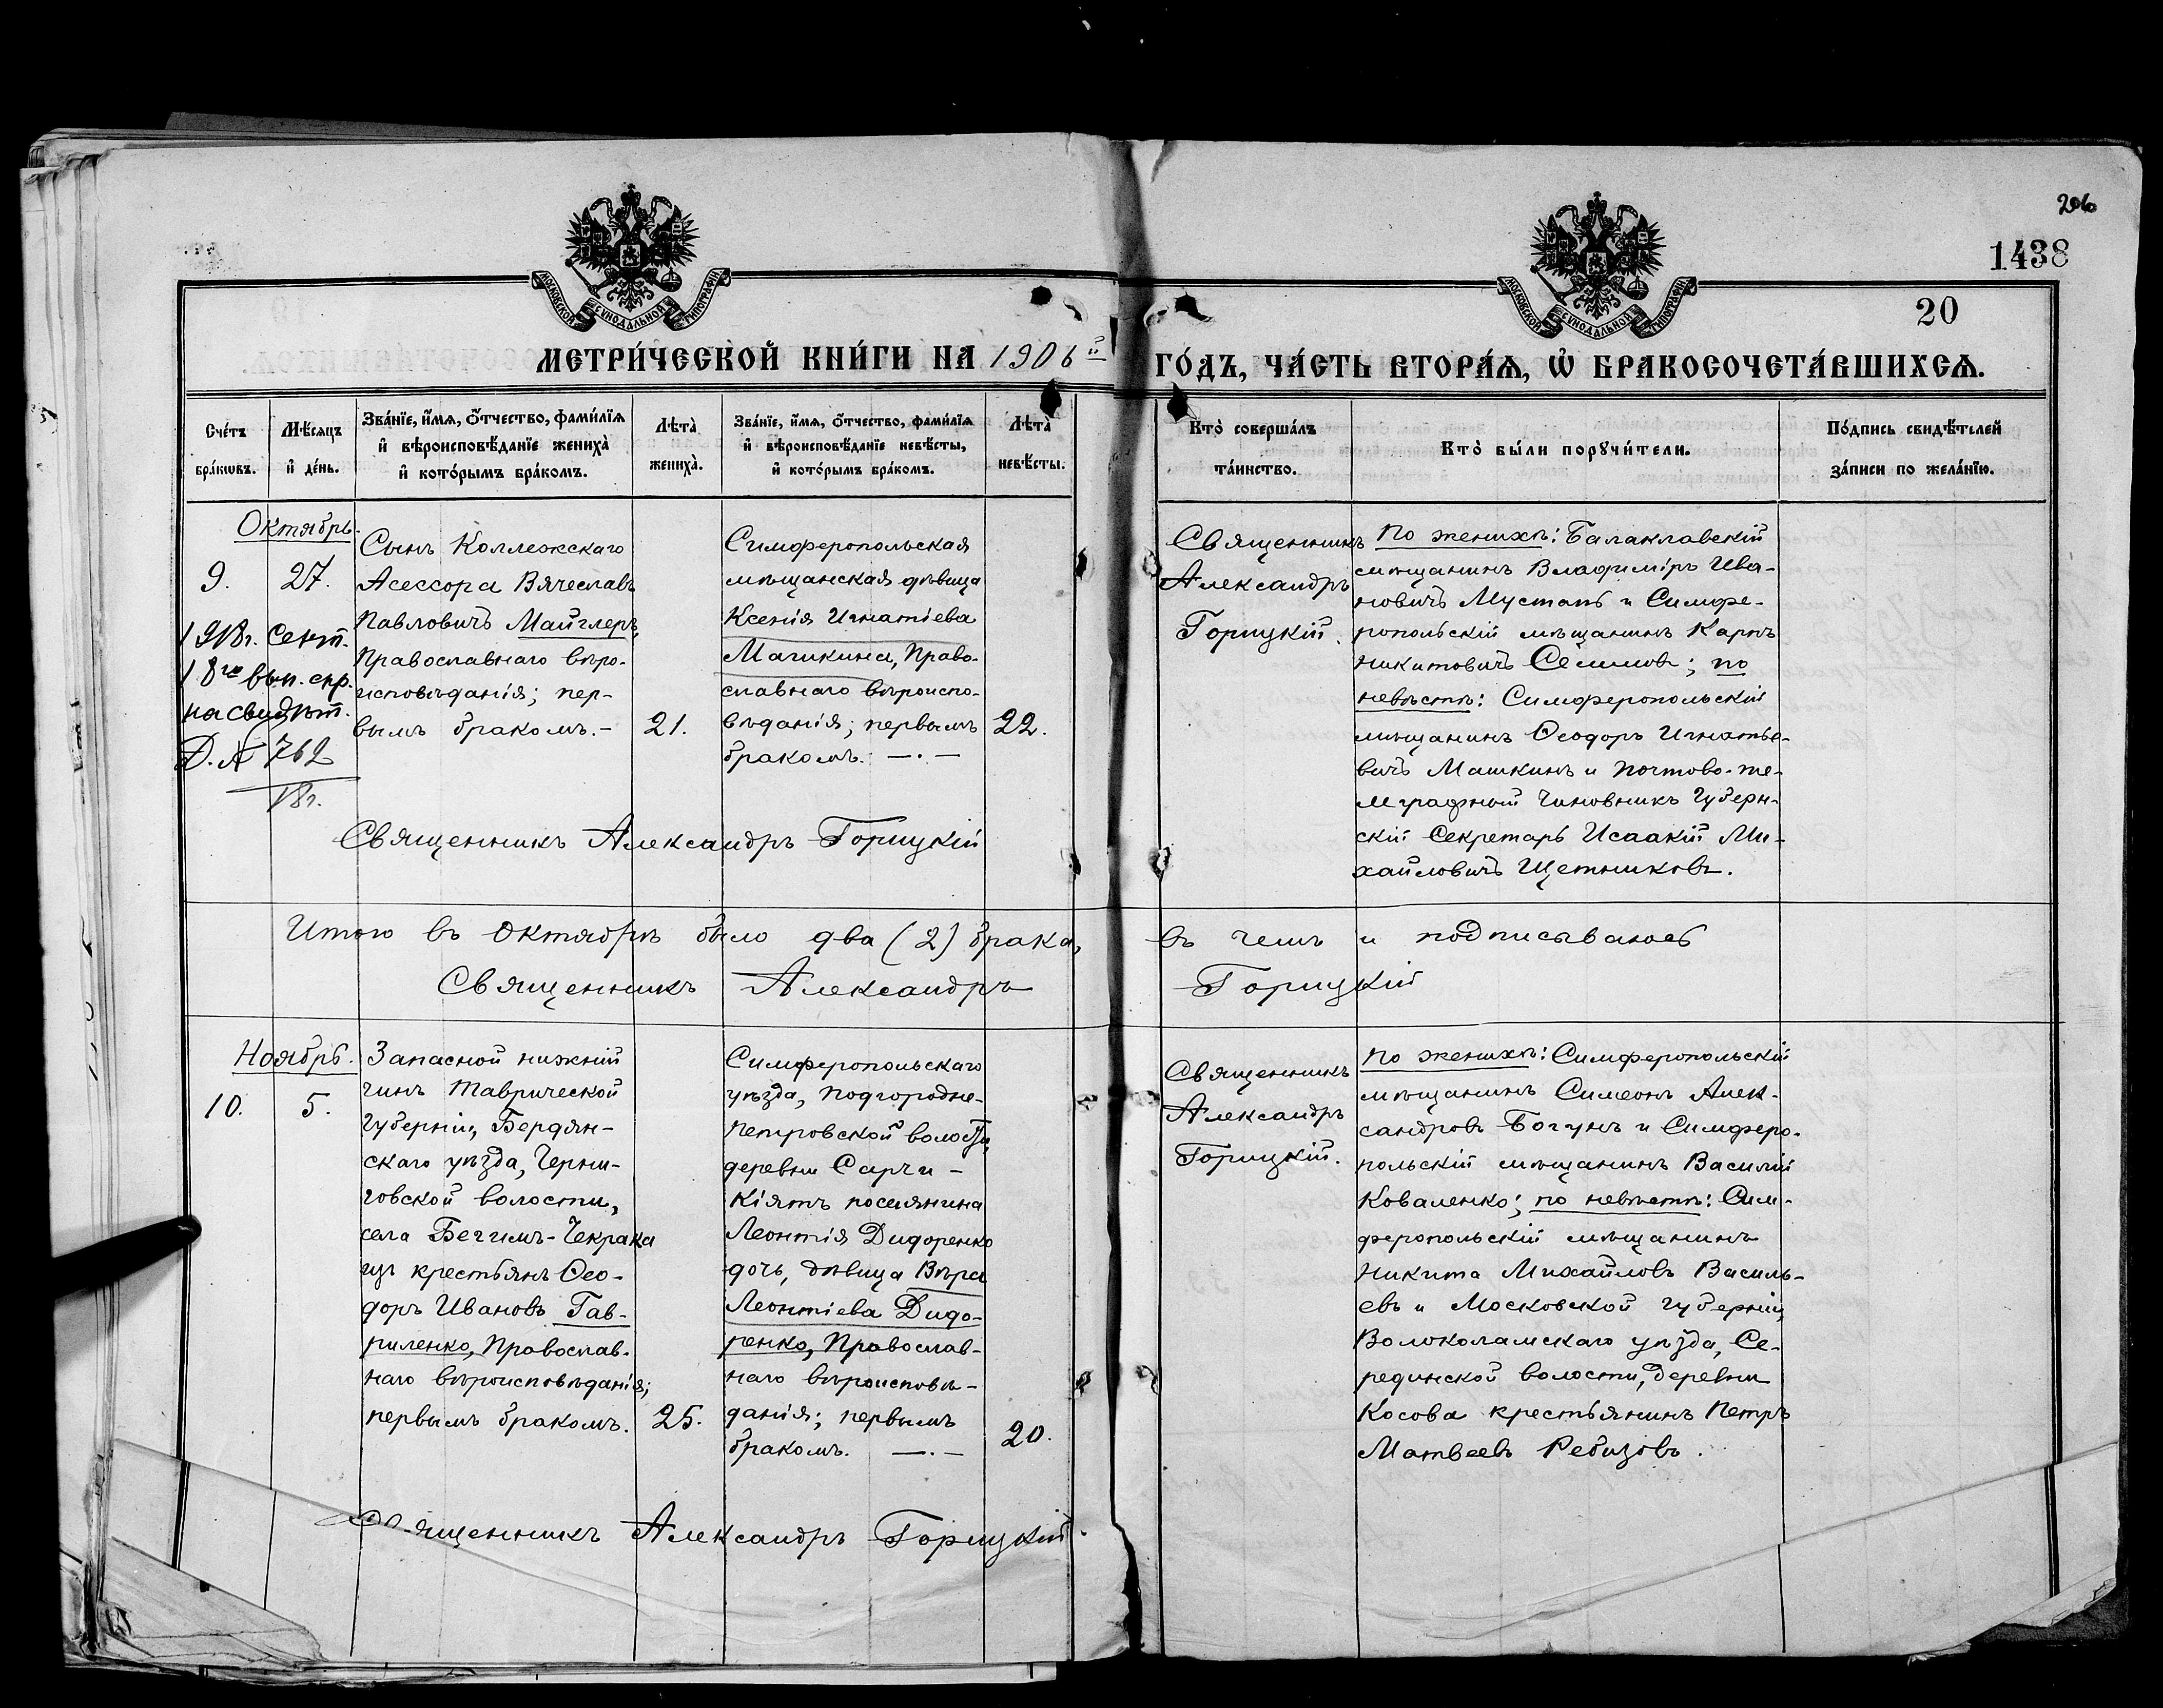 206
1438
20
МОСКОВСКОЙ СѴНОДАЛЬНОЙ ТИПОГРАФІИ
МОСКОВСКОЙ СѴНОДАЛЬНОЙ ТИПОГРАФІИ
МЕТРИ́ЧЕСКОЙ КНИ́ГИ НА 1906й ГО́ДЪ, ЧА́СТЬ ВТОРА́Ѧ, Ѡ҆ БРАКОСОЧЕТА́ВШИХСѦ.
Сче́тъ
бра́кѡвъ.
Мѣ́сяцъ
и҆ де́нь.
Зва́нїе, и҆́мѧ, ѻ҆́тчество, фами́лїѧ
и҆ вѣроисповѣ́данїе жениха̀
и҆ кото́рымъ бра́комъ.
Лѣ́та̀
жениха̀.
Зва́нїе, и҆́мѧ, ѻ҆́тчество, фами́лїѧ
и҆ вѣроисповѣ́данїе невѣ́сты,
и҆ кото́рымъ бра́комъ.
Лѣ́та̀
невѣ́сты.
Кто̀ соверша́лъ
та́инство.
Кто̀ бы́ли порꙋчи́тели.
По́дпись свидѣ́телей
за́писи по жела́нїю.
Октябрь.
9.
27.
1918г. Сент.
18го вып. спр.
на свидѣт.
Д. № 762
18г.
Сынъ Коллежскаго
Асессора Вячеславъ
Павловичъ Майглеръ,
Православнаго вѣро-
исповѣданія; пер-
вымъ бракомъ.-
21.
Симферопольская
мѣщанская дѣвица
Ксенія Игнатіева
Машкина, Право-
славнаго вѣроиспо-
вѣданія; первымъ
бракомъ. —.—
22.
Священникъ
Александръ
Горицкій.
По женихѣ: Балаклавскій
мѣщанинъ Владиміръ Ива-
новичъ Мустапъ и Симфе-
ропольскій мѣщанинъ Карпъ
Никитовичъ Семиловъ; по
невѣстѣ: Симферопольскій
мѣщанинъ Ѳеодоръ Игнатье-
вичъ Машкинъ и Почтово-те-
леграфный Чиновникъ Губерн-
скій Секретарь Исаакій Ми-
хайловичъ Щетниковъ.
Священникъ Александръ Горицкій
Итого въ Октябрѣ было два (2) брака, въ чемъ и подписываюсь
Священникъ Александръ Горицкій
Ноябрь.
10.
5.
Запасной нижній
чинъ Таврической
Губерніи, Бердян-
скаго уѣзда, Черни-
говской волости,
села Бегимъ-Чекрака
изъ крестьянъ Ѳео-
доръ Ивановъ Гав-
риленко, Православ-
наго вѣроисповѣданія;
первымъ бракомъ.
25.
Симферопольскаго
уѣзда, Подгородне-
Петровской волости,
деревни Сарчи-
Кіятъ поселянина
Леонтія Дидоренко
дочь, дѣвица Вѣра
Леонтіева Дидо-
ренко, Православ-
наго вѣроисповѣ-
данія; первымъ
бракомъ. —.—
20.
Священникъ
Александръ
Горицкій.
По женихѣ: Симферопольскій
мѣщанинъ Симеонъ Алек-
сандровъ Богунъ и Симферо-
польскій мѣщанинъ Василій
Коваленко; по невѣстѣ: Сим-
феропольскій мѣщанинъ
Никита Михайловъ Василь-
евъ и Московской губерніи,
Волоколамскаго уѣзда, Се-
рединской волости, деревни
Косова крестьянинъ Петръ
Матвеевъ Ребизовъ.
Священникъ Александръ Горицкій.